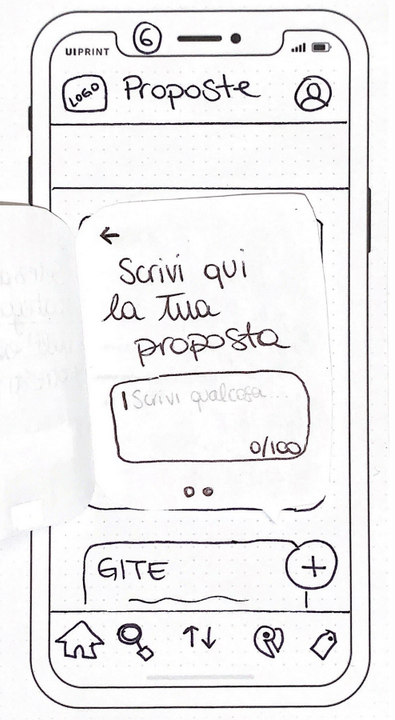 6
UIPRINT
LOGO Proposte
←
Scrivi qui
la Tua
proposta
Scrivi qualcosa...
0/100
GITE
+